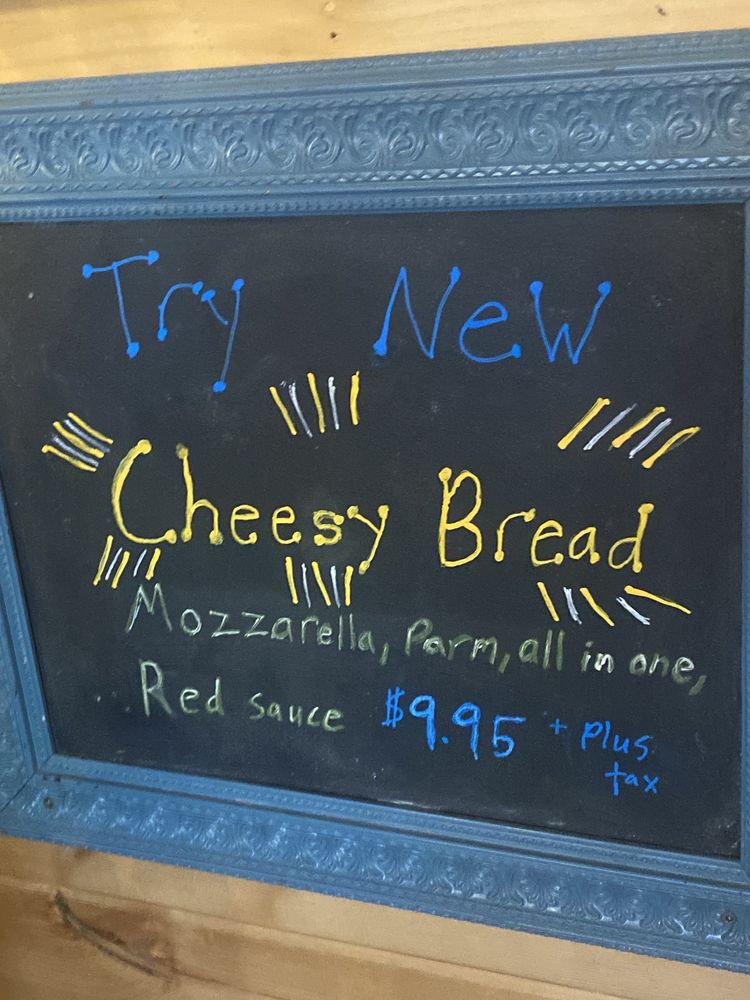 Try New
Cheesy Bread
Mozzarella, Parm, all in one,
Red sauce $9.95 + plus
tax